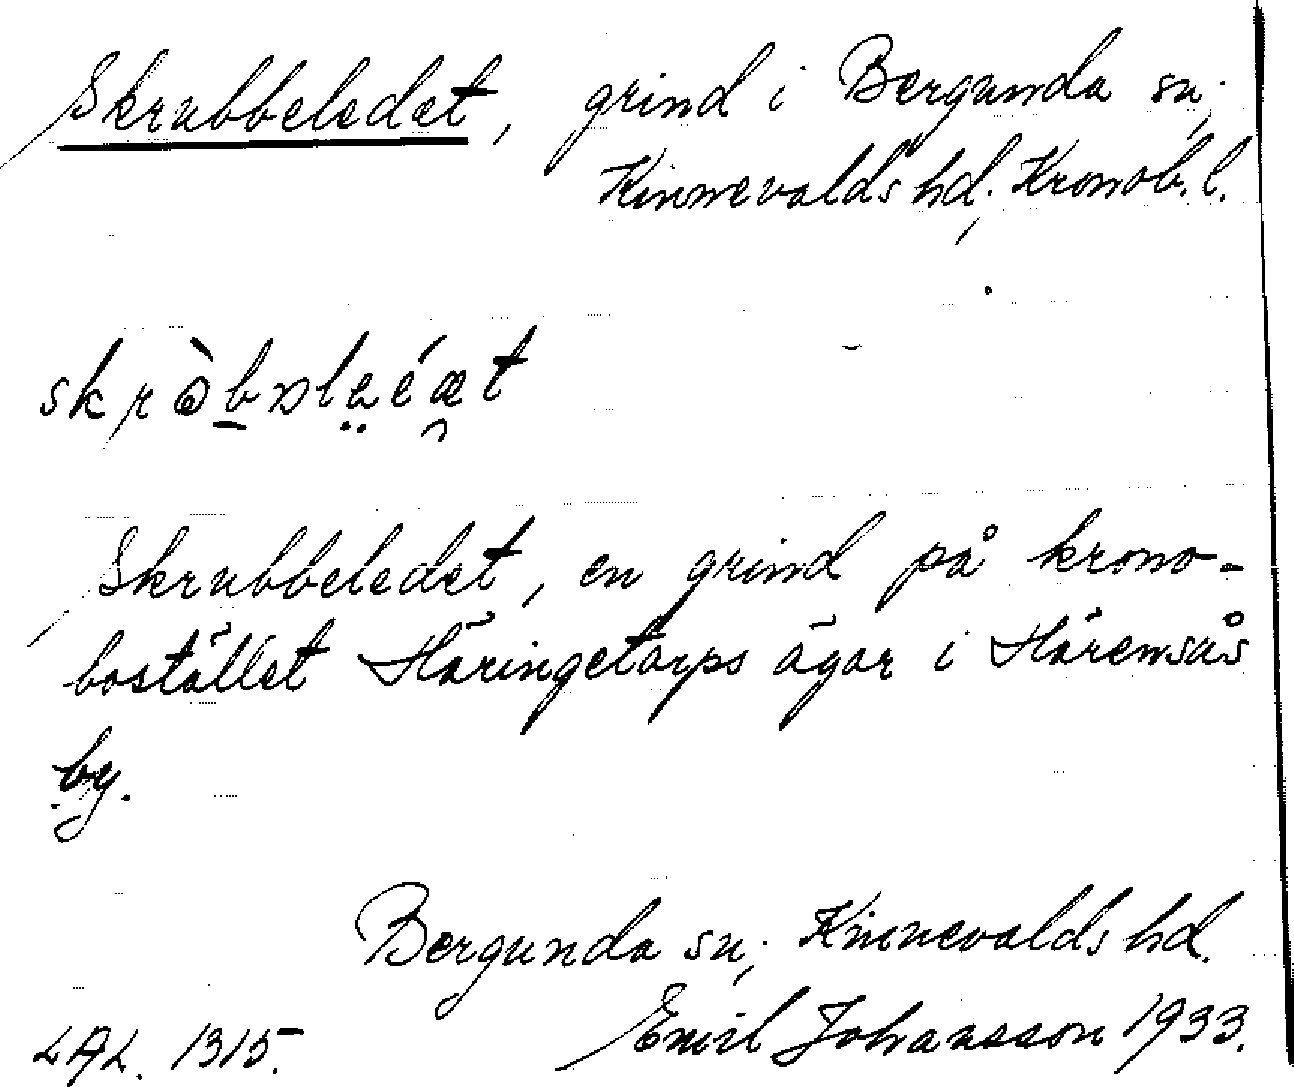 Skrubbeledet, grind i Bergunda sn;
Kinnevalds hd, Kronob. l.
Skrubbeledet, en grind på krono-
bostället Häringetorps ägor i Härensås
by.
Bergunda sn; Kinnevalds hd.
LAL. 1315. Emil Johansson 1933.